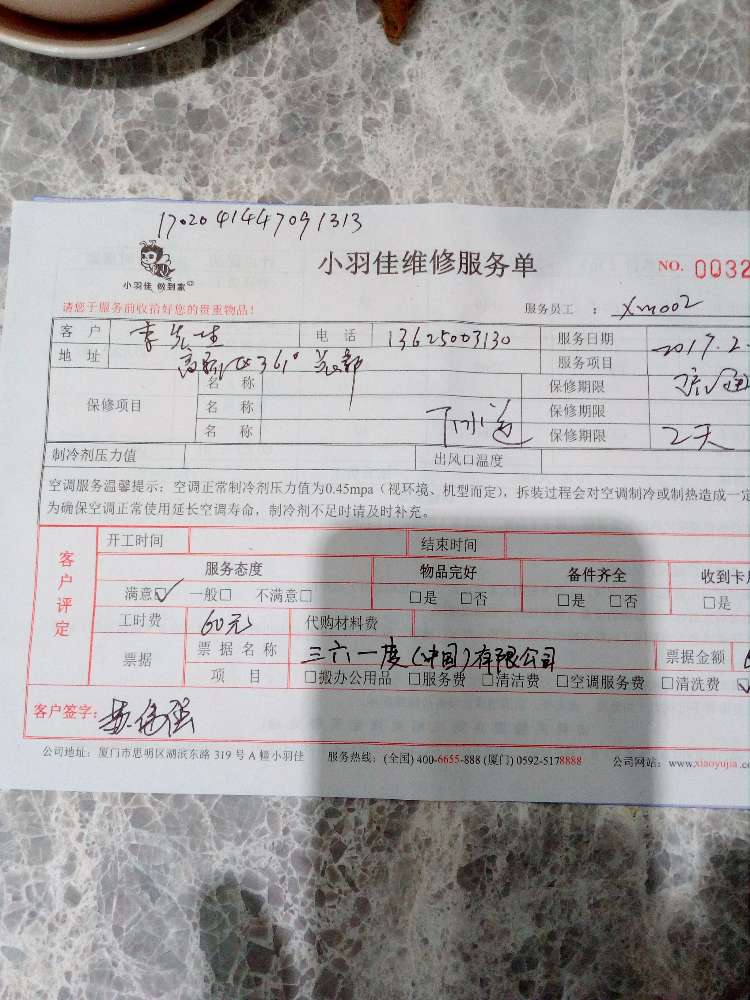 1702041447091313
小羽佳 做到家
小羽佳维修服务单
NO. 0032
请您于服务前收拾好您的贵重物品!
服务员工 : xm002
客户 李先生 电话 13625003130 服务日期 2017.2.
地址 高新 361° 总部 服务项目
保修项目 名称 保修期限
名称 下水道 保修期限
名称 保修期限 2天
制冷剂压力值 出风口温度
空调服务温馨提示:空调正常制冷剂压力值为0.45mpa(视环境、机型而定),拆装过程会对空调制冷或制热造成一定
为确保空调正常使用延长空调寿命,制冷剂不足时请及时补充。
客户评定
开工时间 结束时间
服务态度 物品完好 备件齐全 收到卡
满意☑ 一般□ 不满意□ □是 □否 □是 □否 □是
工时费 60元 代购材料费
票据 票据名称 三六一度(中国)有限公司 票据金额
项目 □搬办公用品 □服务费 □清洁费 □空调服务费 □清洗费
客户签字:
公司地址:厦门市思明区湖滨东路 319 号 A 幢小羽佳 服务热线:(全国) 400-6655-888 (厦门) 0592-5178888 公司网站:www.xiaoyujia.co